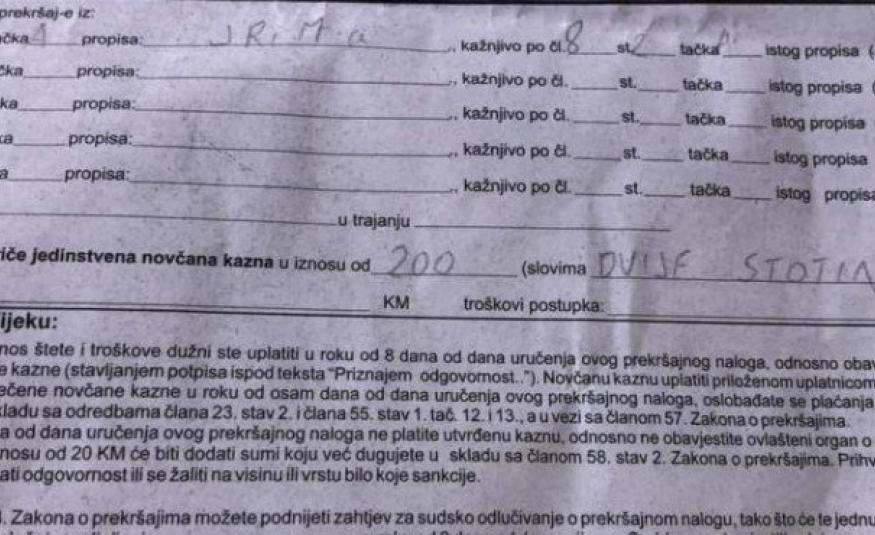 prekršaj-e iz:
čka 1 propisa: JRiM-a , kažnjivo po čl. 8 st. 2 tačka istog propisa (
čka propisa: , kažnjivo po čl. st. tačka istog propisa (
ka propisa: , kažnjivo po čl. st. tačka istog propisa
ka propisa: , kažnjivo po čl. st. tačka istog propisa
a propisa: , kažnjivo po čl. st. tačka istog propisa
u trajanju
iče jedinstvena novčana kazna u iznosu od 200 (slovima DVIJE STOTIN
KM troškovi postupka:
ijeku:
nos štete i troškove dužni ste uplatiti u roku od 8 dana od dana uručenja ovog prekršajnog naloga, odnosno obav
e kazne (stavljanjem potpisa ispod teksta "Priznajem odgovornost.."). Novčanu kaznu uplatiti priloženom uplatnicom
ečene novčane kazne u roku od osam dana od dana uručenja ovog prekršajnog naloga, oslobađate se plaćanja
kladu sa odredbama člana 23, stav 2. i člana 55. stav 1. tač. 12. i 13., a u vezi sa članom 57. Zakona o prekršajima.
a od dana uručenja ovog prekršajnog naloga ne platite utvrđenu kaznu, odnosno ne obavjestite ovlašteni organ o
nosu od 20 KM će biti dodati sumi koju već dugujete u skladu sa članom 58. stav 2. Zakona o prekršajima. Prihv
ati odgovornost ili se žaliti na visinu ili vrstu bilo koje sankcije.
. Zakona o prekršajima možete podnijeti zahtjev za sudsko odlučivanje o prekršajnom nalogu, tako što će te jednu